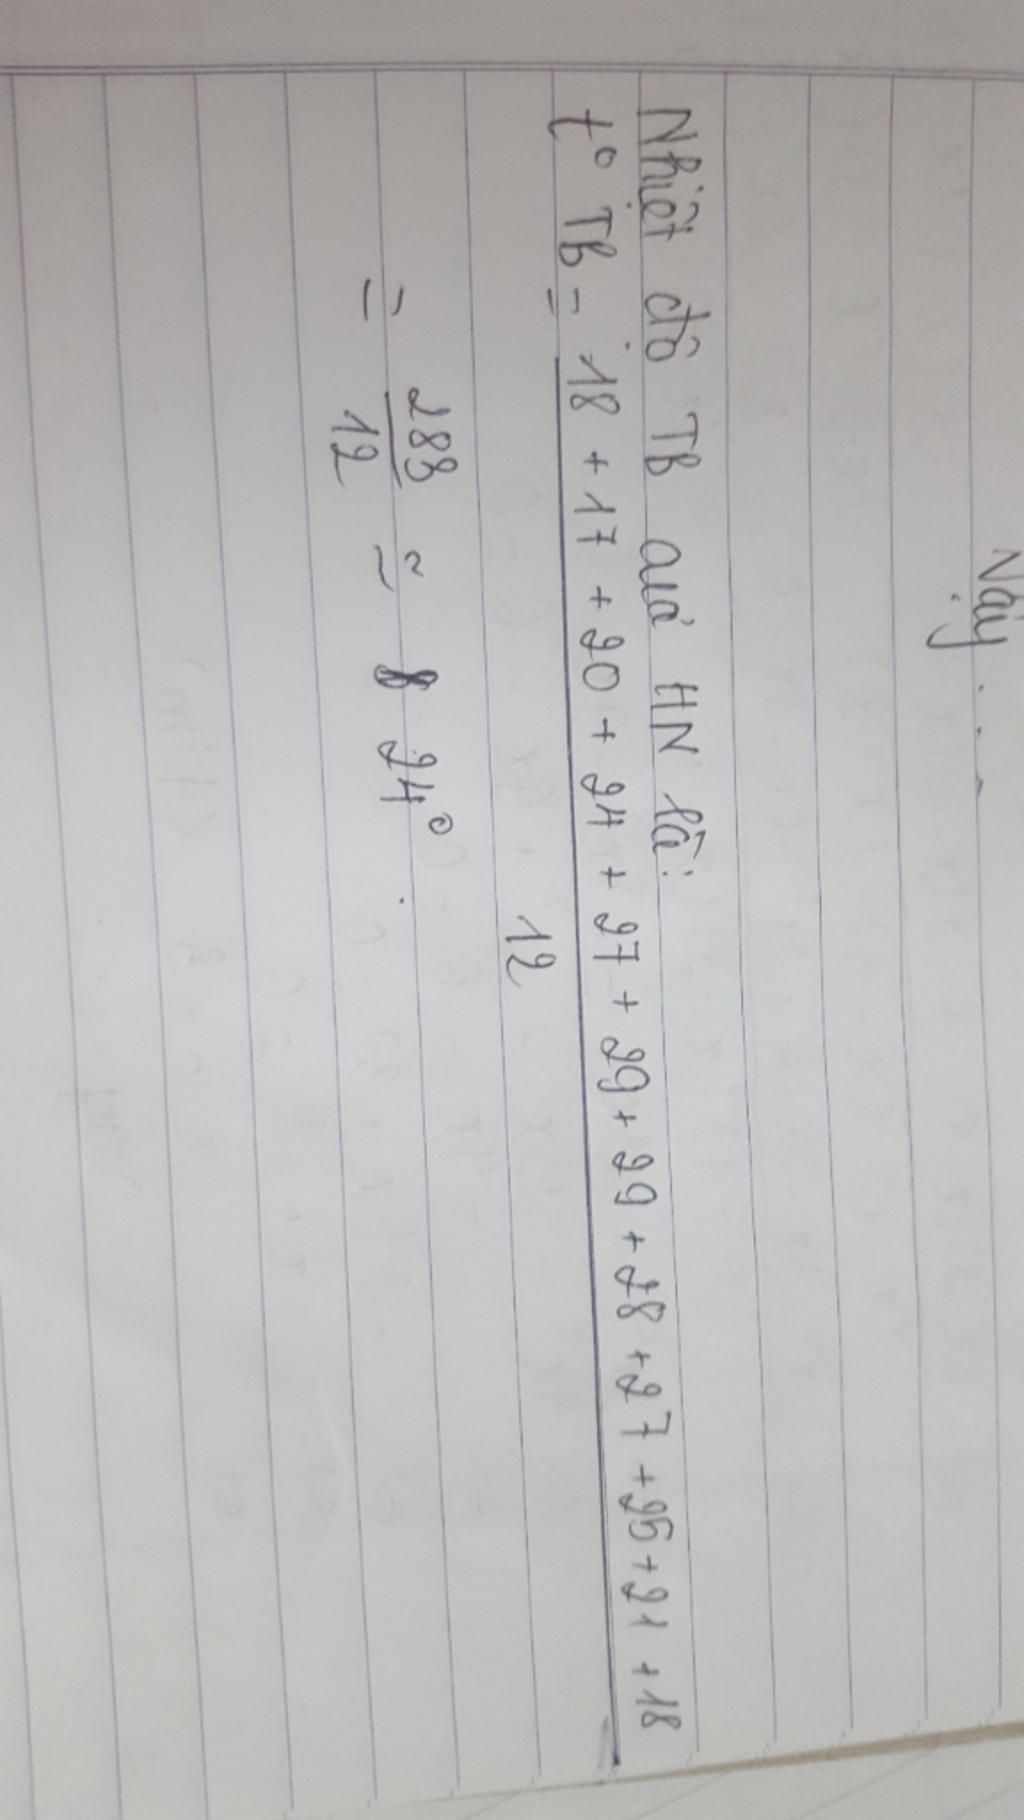 Nậy...
Nhiệt độ TB của HN là:
t° TB = 18 + 17 + 20 + 24 + 27 + 29 + 29 + 28 + 27 + 25 + 21 + 18
12
= 283
12
≈ 24°